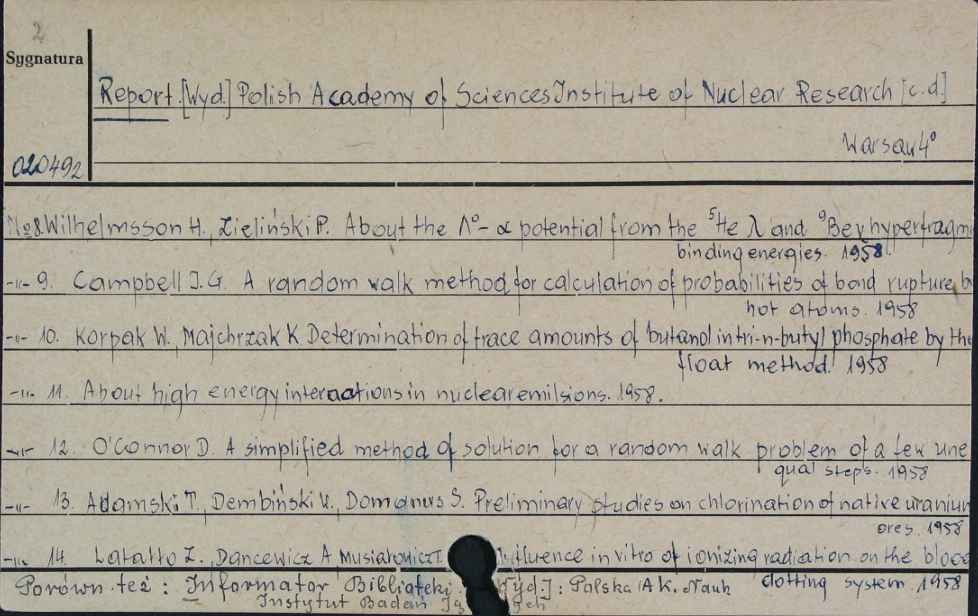 2
Sygnatura
Report. [Wyd.] Polish Academy of Sciences Institute of Nuclear Research [c.d.]
Warsaw 4°
020492
No 8 Wilhelmsson H., Zieliński P. About the Λ°-α potential from the ⁵He λ and ⁹Bey hyperfragm
binding energies. 1958.
-"- 9. Campbell J.G. A random walk method for calculation of probabilities of bond rupture by
hot atoms. 1958
-"- 10. Korpak W., Majchrzak K Determination of trace amounts of butanol in tri-n-butyl phosphate by the
float method. 1958
-"- 11. About high energy interactions in nuclear emilsions. 1958.
-"- 12. O'Connor D. A simplified method of solution for a random walk problem of a few une
qual steps. 1958
-"- 13. Adamski T., Dembiński W., Domanus S. Preliminary studies on chlorination of native uranium
ores. 1958
-"- 14. Latałło Z., Dancewicz A Musiałowicz T. Influence in vitro of ionizing radiation on the blood
clotting system 1958
Porówn. też: Informator Biblioteki. [Wyd.]: Polska Ak. Nauk
Instytut Badań